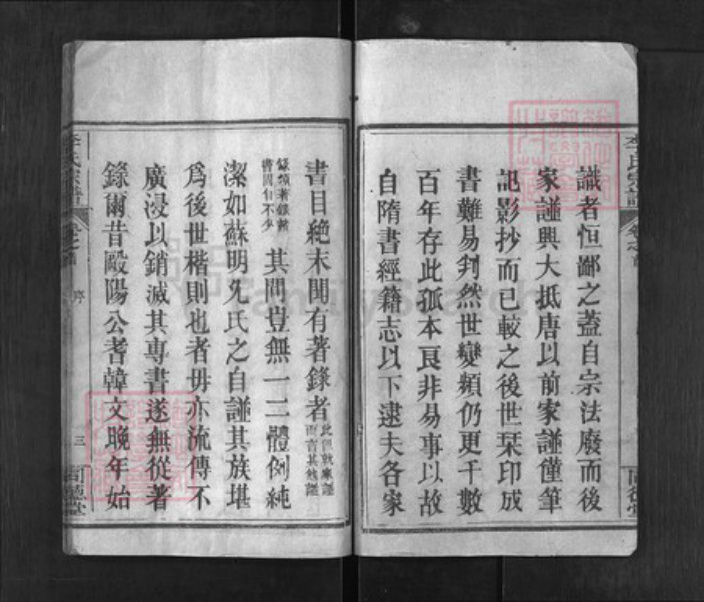 識者恒鄙之蓋自宗法廢而後
家譜興大抵唐以前家譜僅筆
記影抄而已較之後世栞印成
書難易判然世變頻仍更千數
百年存此孤本良非易事以故
自隋書經籍志以下逮夫各家
李氏宗譜
卷之首
序
三
同德堂
書目絶末聞有著錄者
此但就家譜
而言其族譜
錄類者錄前
書固自不少
其間豈無一二體例純
潔如蘇明允氏之自譜其族堪
爲後世楷則也者毋亦流傳不
廣浸以銷滅其專書遂無從著
錄爾昔歐陽公耆韓文晚年始